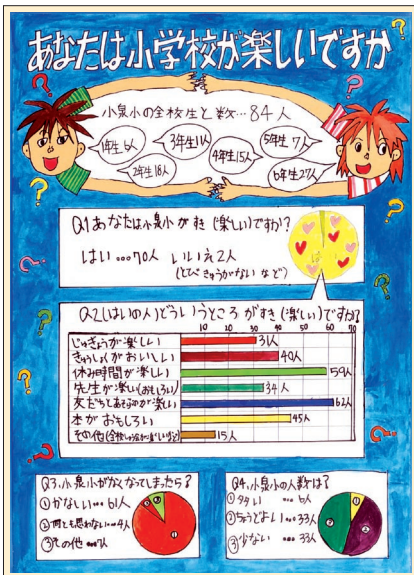 あなたは小学校が楽しいですか
小泉小の全校生と数…84人
1年生6人
2年生18人
3年生11人
4年生15人
5年生7人
6年生27人
Q1 あなたは小泉小がすき(楽しい)ですか?
はい…70人 いいえ2人
(とびきゅうがない など)
はい
Q2.(はいの人)どういうところがすき(楽しい)ですか?
10 20 30 40 50 60 70
じゅぎょうが楽しい 31人
きゅうしょくがおいしい 40人
休み時間が楽しい 59人
先生が楽しい(おもしろい) 34人
友だちとあそぶのが楽しい 62人
本がおもしろい 45人
その他 15人
Q3.小泉小がなくなってしまったら?
①かなしい…61人
②何とも思わない…4人
③その他…7人
① ② ③
Q4.小泉小の人数は?
①多い…6人
②ちょうどよい…33人
③少ない…33人
① ② ③